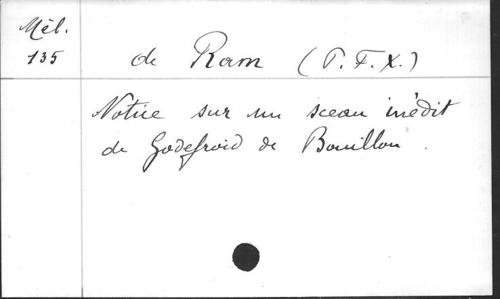 Mél.
135
de Ram (P. F. X.)
Notice sur un sceau inédit
de Godefroid de Bouillon.